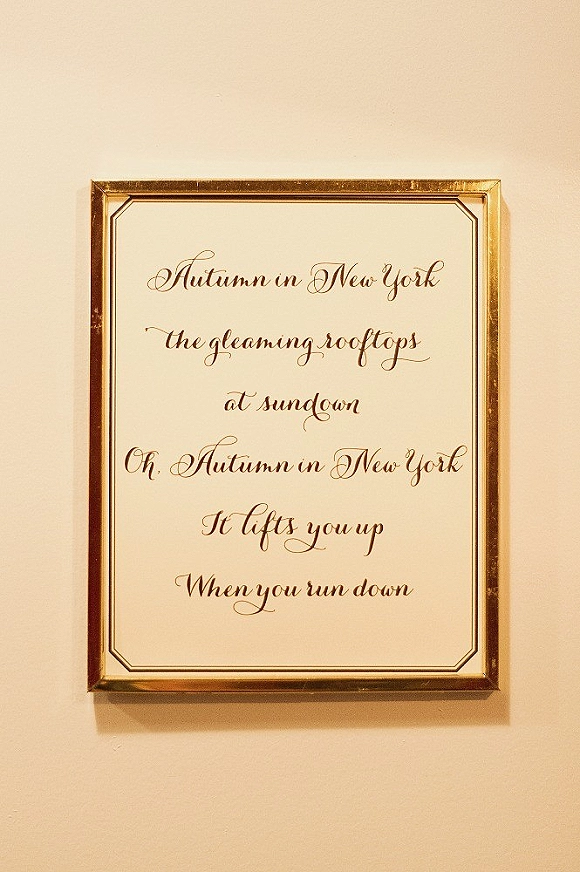 Autumn in New York
the gleaming rooftops
at sundown
Oh, Autumn in New York
It lifts you up
When you run down